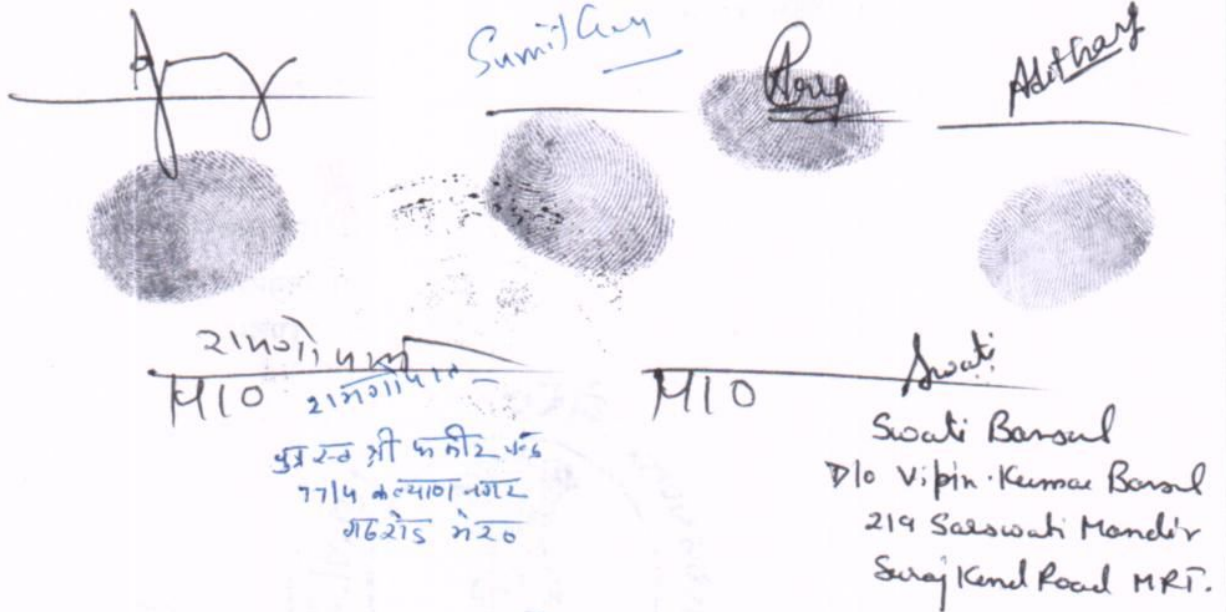 Sumit Garg
Adit Garg
रामगोपाल
Swati
रामगोपाल
पुत्र स्व श्री फकीर चन्द
77/4 कल्याण नगर
गढ रोड मेरठ
Swati Bansal
D/o Vipin Kumar Bansal
219 Saraswati Mandir
Suraj Kund Road MRT.